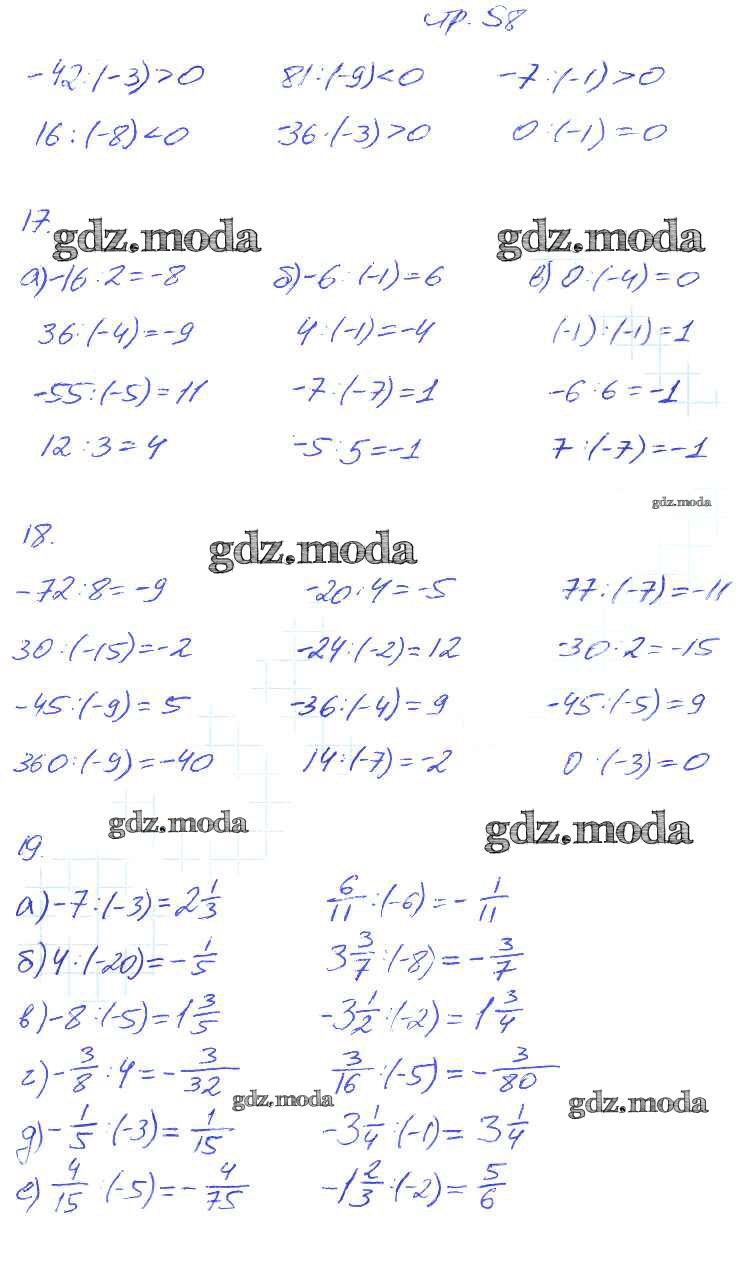 стр. 58
-42:(-3)>0 81:(-9)<0 -7:(-1)>0
16:(-8)<0 -36:(-3)>0 0:(-1)=0
17.
gdz.moda gdz.moda
а)-16:2=-8 б)-6:(-1)=6 в) 0:(-4)=0
36:(-4)=-9 4:(-1)=-4 (-1):(-1)=1
-55:(-5)=11 -7:(-7)=1 -6:6=-1
12:3=4 -5:5=-1 7:(-7)=-1
gdz.moda
18.
gdz.moda
-72:8=-9 -20:4=-5 77:(-7)=-11
30:(-15)=-2 -24:(-2)=12 -30:2=-15
-45:(-9)=5 -36:(-4)=9 -45:(-5)=9
360:(-9)=-40 14:(-7)=-2 0:(-3)=0
gdz.moda gdz.moda
19.
а)-7:(-3)=2 1/3 6/11:(-6)=-1/11
б)4:(-20)=-1/5 3 3/7:(-8)=-3/7
в)-8:(-5)=1 3/5 -3 1/2:(-2)=1 3/4
г)-3/8:4=-3/32 3/16:(-5)=-3/80
gdz.moda gdz.moda
д)-1/5:(-3)=1/15 -3 1/4:(-1)=3 1/4
е)4/15:(-5)=-4/75 -1 2/3:(-2)=5/6